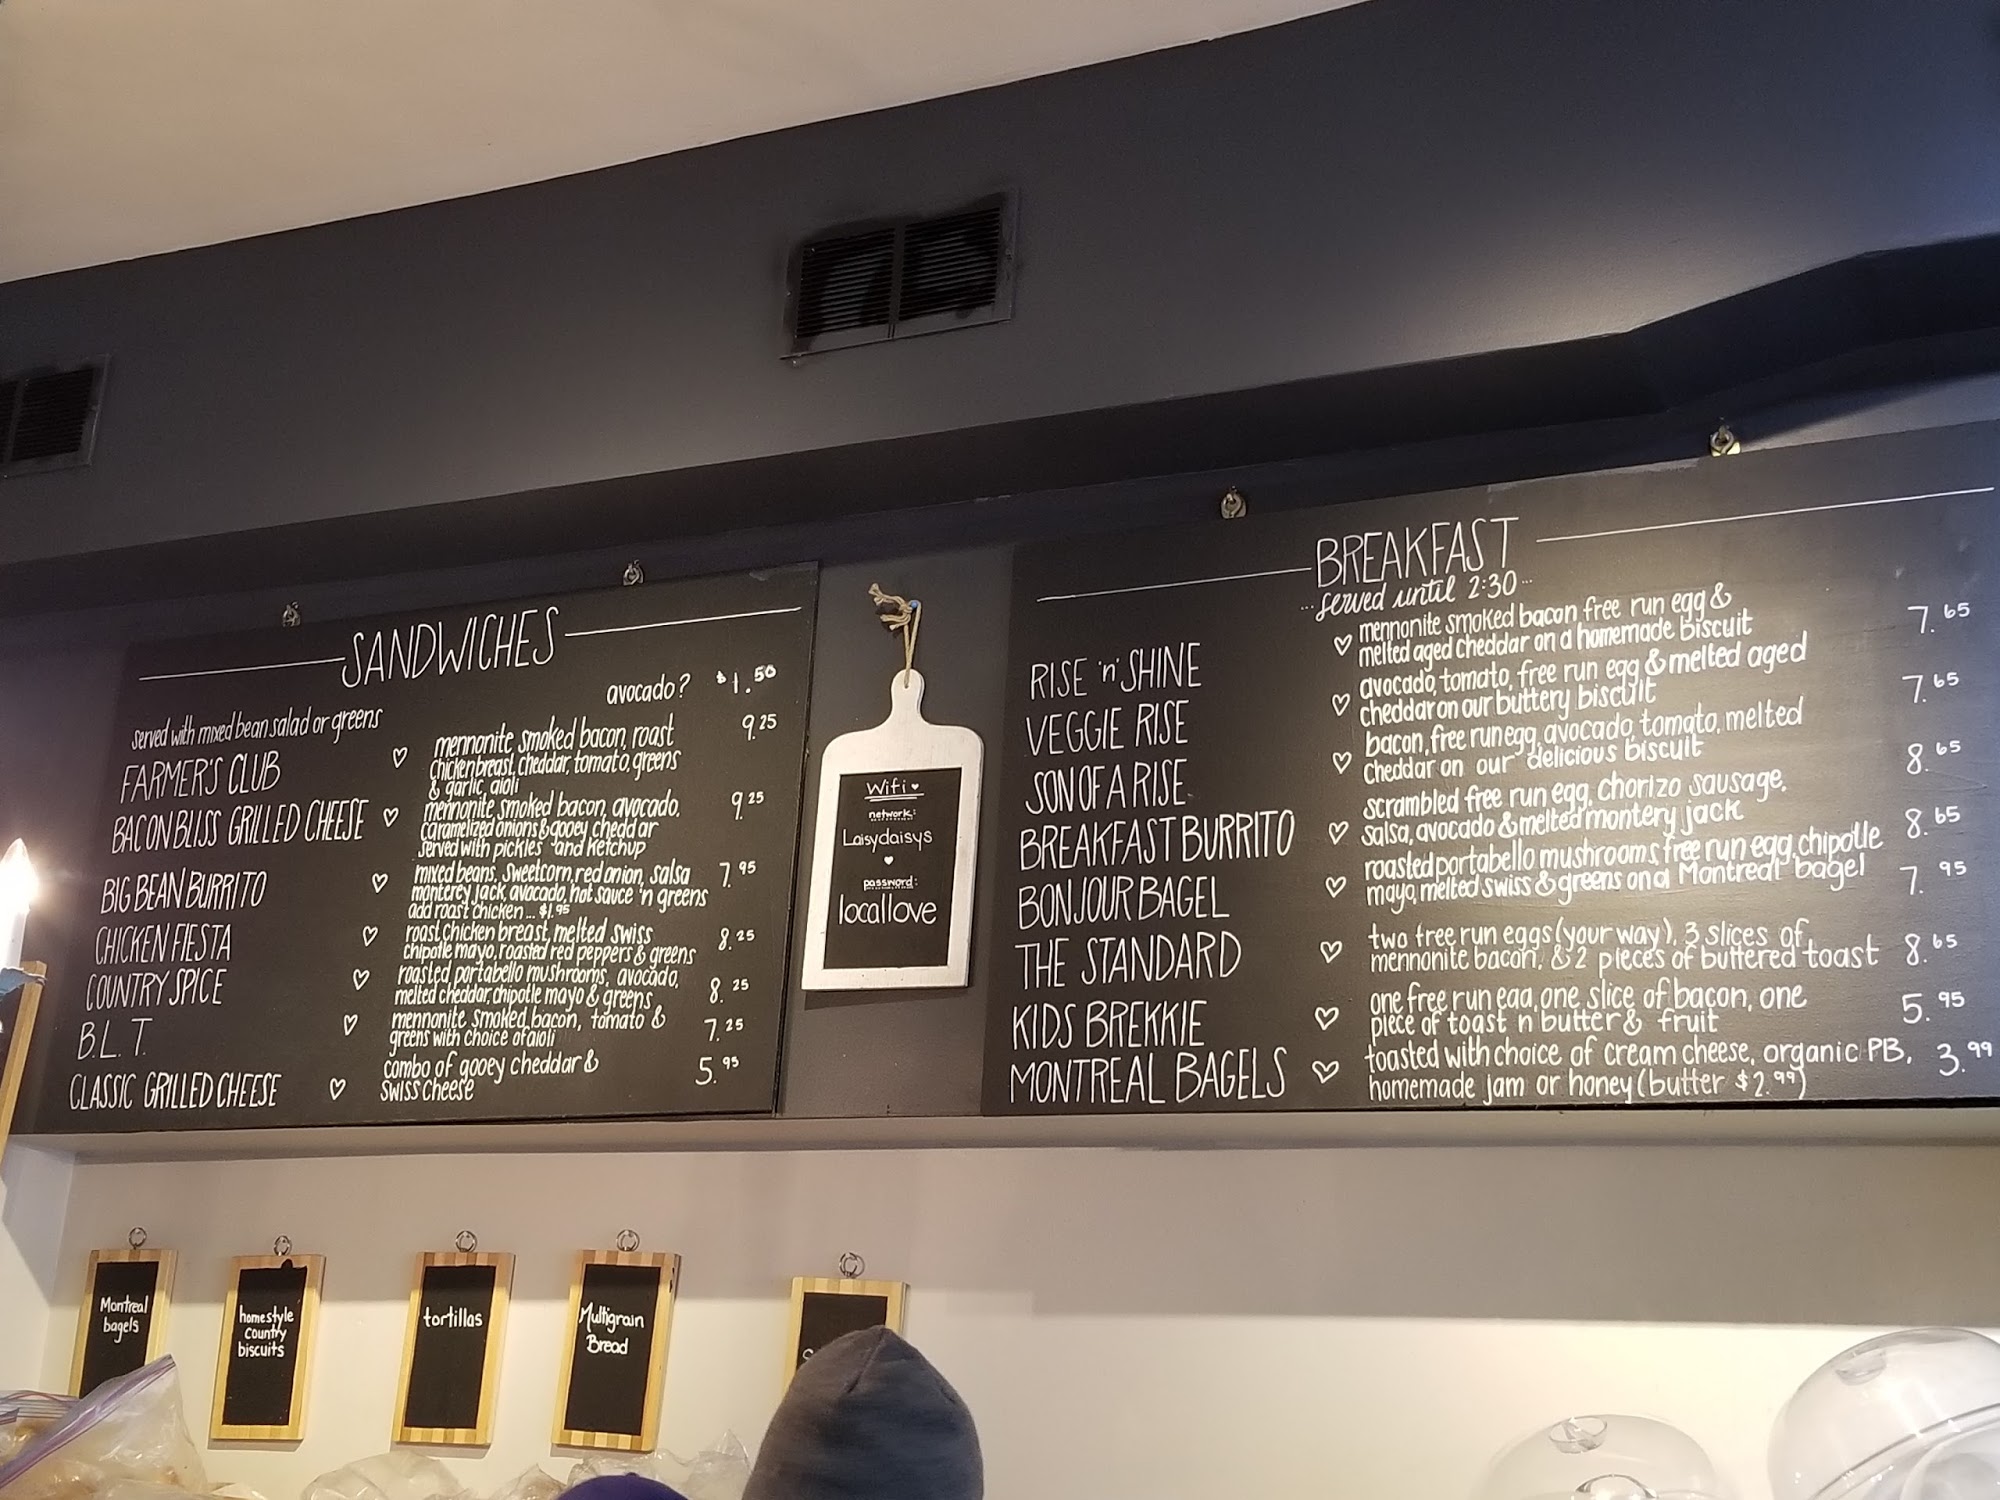 SANDWICHES
avocado? $1.50
served with mixed bean salad or greens
FARMER'S CLUB ♡ mennonite smoked bacon, roast 9.25
chicken breast, cheddar, tomato, greens
& garlic aioli
BACON BLISS GRILLED CHEESE ♡ mennonite smoked bacon, avocado, 9.25
caramelized onions & gooey cheddar
served with pickles and ketchup
BIG BEAN BURRITO ♡ mixed beans, sweetcorn, red onion, salsa 7.95
monterey jack, avocado, hot sauce 'n greens
add roast chicken... $1.95
CHICKEN FIESTA ♡ roast chicken breast, melted swiss 8.25
chipotle mayo, roasted red peppers & greens
COUNTRY SPICE ♡ roasted portabello mushrooms, avocado, 8.25
melted cheddar, chipotle mayo & greens
B.L.T. ♡ mennonite smoked bacon, tomato & 7.25
greens with choice of aioli
CLASSIC GRILLED CHEESE ♡ combo of gooey cheddar & 5.95
swiss cheese
Wifi ♥
network:
Laisydaisys
♥
password:
locallove
BREAKFAST
...served until 2:30...
RISE 'n' SHINE ♡ mennonite smoked bacon free run egg & 7.65
melted aged cheddar on a homemade biscuit
VEGGIE RISE ♡ avocado, tomato, free run egg & melted aged 7.65
cheddar on our buttery biscuit
SON OF A RISE ♡ bacon, free run egg, avocado, tomato, melted 8.65
cheddar on our delicious biscuit
BREAKFAST BURRITO ♡ scrambled free run egg, chorizo sausage, 8.65
salsa, avocado & melted montery jack
BONJOUR BAGEL ♡ roasted portabello mushrooms, free run egg, chipotle 7.95
mayo, melted swiss & greens on a Montreal bagel
THE STANDARD ♡ two free run eggs (your way), 3 slices of 8.65
mennonite bacon, & 2 pieces of buttered toast
KIDS BREKKIE ♡ one free run egg, one slice of bacon, one 5.95
piece of toast n' butter & fruit
MONTREAL BAGELS ♡ toasted with choice of cream cheese, organic PB, 3.99
homemade jam or honey (butter $2.99)
Montreal
bagels
homestyle
country
biscuits
tortillas
Multigrain
Bread